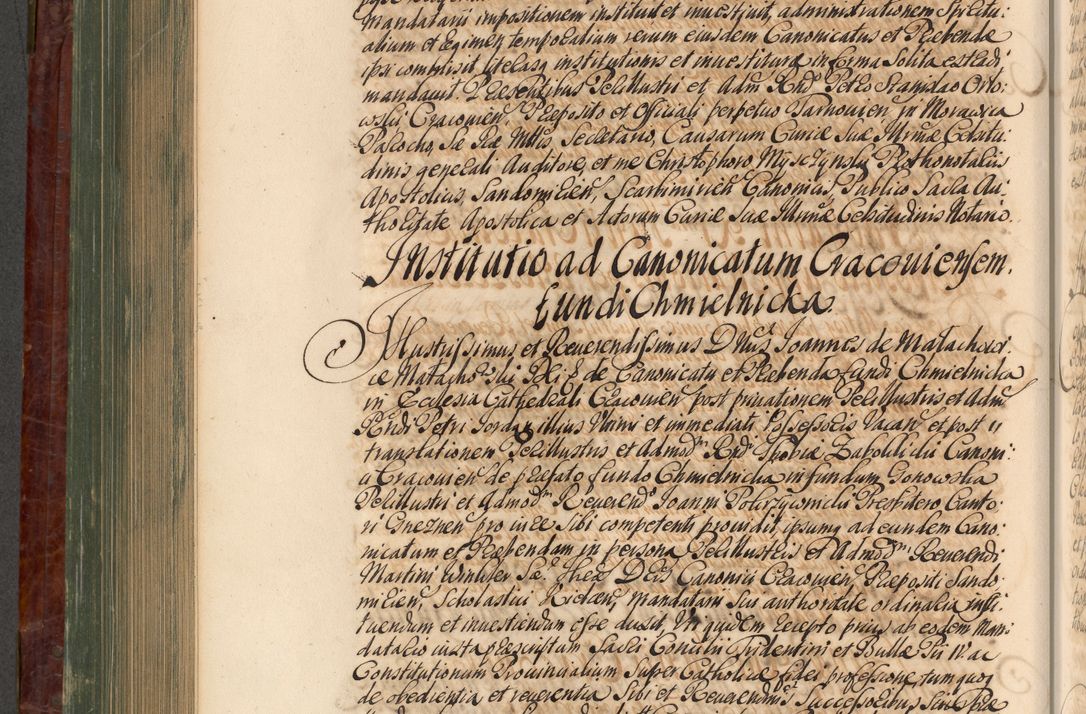 Mandatarii impositionem instituit et inuestiuit, administrationem Spiritu:
alium et Regimen temporalium rerum eiusdem Canonicatus et Præbendæ
ipsi commisit literasq institutionis et inuestituræ in forma Solita extradi
mandauit Præsentibus Perillustri et Adm Rndo Petro Stanislao Orło:
wski Cracouien Præposito et Officiali perpetuo Tarnouien in Morawica
Parocho, Sæ Ræ Mttis Secretario, Causarum Curiæ Suæ Illmæ Celsitu:
dinis generali Auditore, et me Christophoro Mysczynski Prothonotario
Apostolico, Sandomirien, Scarbimirien Canonico, Publico Sacra Au:
thoritate Apostolica et Actorum Curiæ Suæ Illmæ Celsitudinis Notario.
Institutio ad Canonicatum Cracouiensem.
fundi Chmielnicka.
Illustrissimus et Reuerendissimus D Nus Joannes de Małachow:
ice Małachowski de Canonicatu et Præbenda fundi Chmielnicka
in Ecclesia Cathedrali Cracouien post priuationem Perillustris et Adm
Rndi Petri Jordan illius Ultimi et immediati Possessoris Vacan et post
translationem Perillustris et Admod Rndi Thobiæ Canoni:
ci Cracouien de præfato fundo Chmielnicka in fundum Gonowska
Perillustri et Admodm Reuerendo Joanni Presbitero Canto:
ri Gneznen pro iure Sibi competenti prouidit, ipsumq ad eundem Cano:
nicatum et Præbendam in persona Perillustris et Admodm Reuerendi
Martini Winkler Sæ Theæ Dris Canonici Cracouien, Præpositi Sando
mirien, Scholastici Kielcen, Mandatarii Sui authoritate ordinaria insti:
tuendum et inuestiendum esse duxit, Uti quidem recepto prius ab eodem Man:
datario iuxta præscriptum Sacri Concilii Tridentini et Bullæ Pii IV. ac
Constitutionum Prouincialium Super Catholicæ fidei professione, tum quoq
de obedientia et reuerentia Sibi et Reuerendmis Successoribus Suis præ